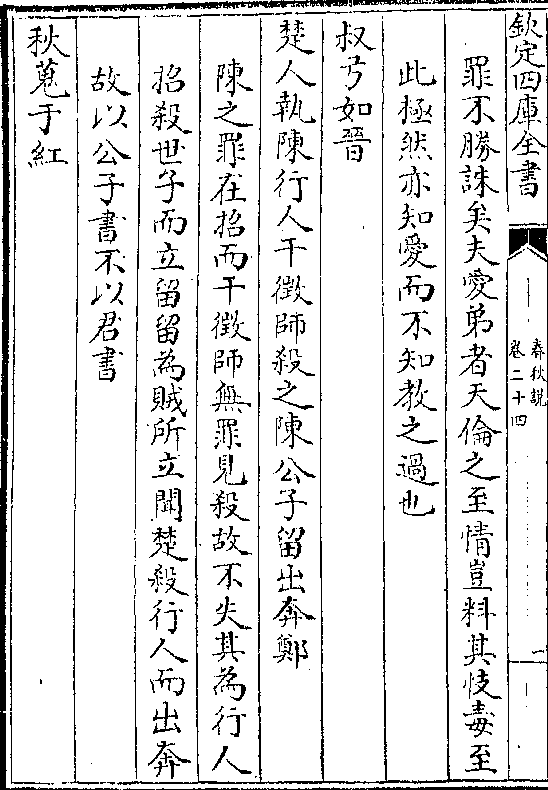 欽定四庫全書
春秋說
卷二十四
一
罪不勝誅矣夫愛弟者天倫之至情豈料其忮毒至
此極然亦知愛而不知教之過也
叔弓如晉
楚人執陳行人干徵師殺之陳公子留出奔鄭
陳之罪在招而干徵師無罪見殺故不失其為行人
招殺世子而立留留為賊所立聞楚殺行人而出奔
故以公子書不以君書
秋蒐于紅